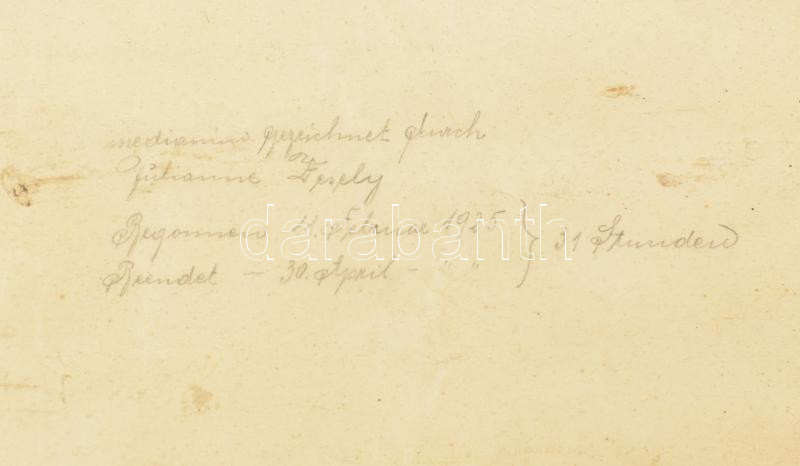 medianim gezeichnet durch
Julianne Vesely
Begonnen 11. Februar 1925 } 31 Stunden
Beendet — 30. April - " "
darabanth